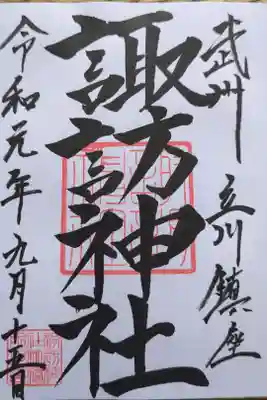 武州 立川鎮座
諏訪神社
令和元年九月十五日